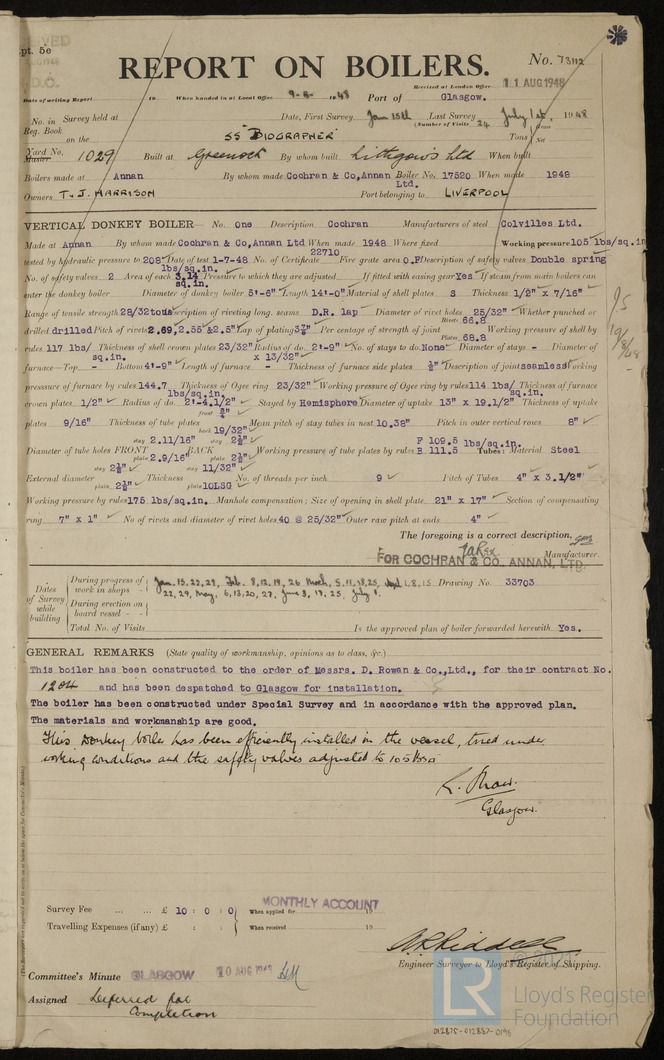 pt. 5e
REPORT ON BOILERS.
No. 73112
Received at London Office 11 AUG 1948
Date of writing Report 19 When handed in at Local Office 9-8- 1948 Port of Glasgow.
No. in Survey held at Date, First Survey Jan 15th Last Survey July 1st 1948
Reg. Book (Number of Visits 24
on the SS "BIOGRAPHER" Tons
Yard No. 1029 Built at Greenock By whom built Lithgow's Ltd When built
Boilers made at Annan By whom made Cochran & Co, Annan Ltd. Boiler No. 17520 When made 1948
Owners T. & J. HARRISON Port belonging to LIVERPOOL
VERTICAL DONKEY BOILER — No. One Description Cochran Manufacturers of steel Colvilles Ltd.
Made at Annan By whom made Cochran & Co, Annan Ltd When made 1948 Where fixed Working pressure 105 lbs/sq.in
tested by hydraulic pressure to 208 lbs/sq.in. Date of test 1-7-48 No. of Certificate 22710 Fire grate area O.F Description of safety valves Double spring
No. of safety valves 2 Area of each 3.14 sq.in. Pressure to which they are adjusted If fitted with easing gear Yes If steam from main boilers can
enter the donkey boiler Diameter of donkey boiler 5'-6" Length 14'-0" Material of shell plates S Thickness 1/2" x 7/16"
Range of tensile strength 28/32 tons Description of riveting long. seams D.R. lap Diameter of rivet holes 25/32" Whether punched or
drilled drilled Pitch of rivets 2.69, 2.55 & 2.5" Lap of plating Per centage of strength of joint Rivets 66.8 Plates 68.8 Working pressure of shell by
rules 117 lbs/sq.in. Thickness of shell crown plates 23/32" Radius of do. 2'-9" x 13/32" No. of stays to do. None Diameter of stays - Diameter of
furnace—Top - Bottom 4'-9" Length of furnace - Thickness of furnace side plates ½" Description of joint seamless Working
pressure of furnace by rules 144.7 lbs/sq.in. Thickness of Ogee ring 23/32" Working pressure of Ogee ring by rules 114 lbs/sq.in. Thickness of furnace
crown plates 1/2" Radius of do. 2'-4.1/2" Stayed by Hemisphere Diameter of uptake 13" x 19.1/2" Thickness of uptake
plates 9/16" Thickness front back 19/32" Mean pitch of stay tubes in nest 10.38" Pitch in outer vertical rows 8"
Diameter of tube holes FRONT stay 2.11/16" plain 2.9/16" BACK stay 2½" plain 2½" Working pressure of tube plates by rules F 109.5 lbs/sq.in. B 111.5 Tubes: Material Steel
External diameter stay 2½" plain 2½" Thickness 11/32" plain 10LSG No. of threads per inch 9 Pitch of Tubes 4" x 3.1/2"
Working pressure by rules 175 lbs/sq.in. Manhole compensation; Size of opening in shell plate 21" x 17" Section of compensating
ring 7" x 1" No of rivets and diameter of rivet holes 40 @ 25/32" Outer raw pitch at ends 4"
The foregoing is a correct description,
FOR COCHRAN & CO. ANNAN, LTD. Manufacturer.
Dates of Survey while building
During progress of work in shops - - Jan. 15, 22, 29, Feb. 8, 12, 19, 26 March, 5, 11, 18, 25, April 1, 8, 15 22, 29, May, 6, 13, 20, 27, June 3, 17, 25, July 1.
Drawing No. 33703
During erection on board vessel - - -
Total No. of Visits Is the approved plan of boiler forwarded herewith Yes.
GENERAL REMARKS (State quality of workmanship, opinions as to class, &c.)
This boiler has been constructed to the order of Messrs. D. Rowan & Co., Ltd., for their contract No.
1204 and has been despatched to Glasgow for installation.
The boiler has been constructed under Special Survey and in accordance with the approved plan.
The materials and workmanship are good.
This Donkey boiler has been efficiently installed in the vessel, tried under
working conditions and the safety valves adjusted to 105 lbs
Glasgow.
Survey Fee ... ... £ 10 : 0 : 0 When applied for MONTHLY ACCOUNT 19
Travelling Expenses (if any) £ : : When received 19
Engineer Surveyor to Lloyd's Register of Shipping.
Committee's Minute GLASGOW 10 AUG 1948
Assigned Deferred for
Completion
LR Lloyd's Register
Foundation
012875-012887-0196